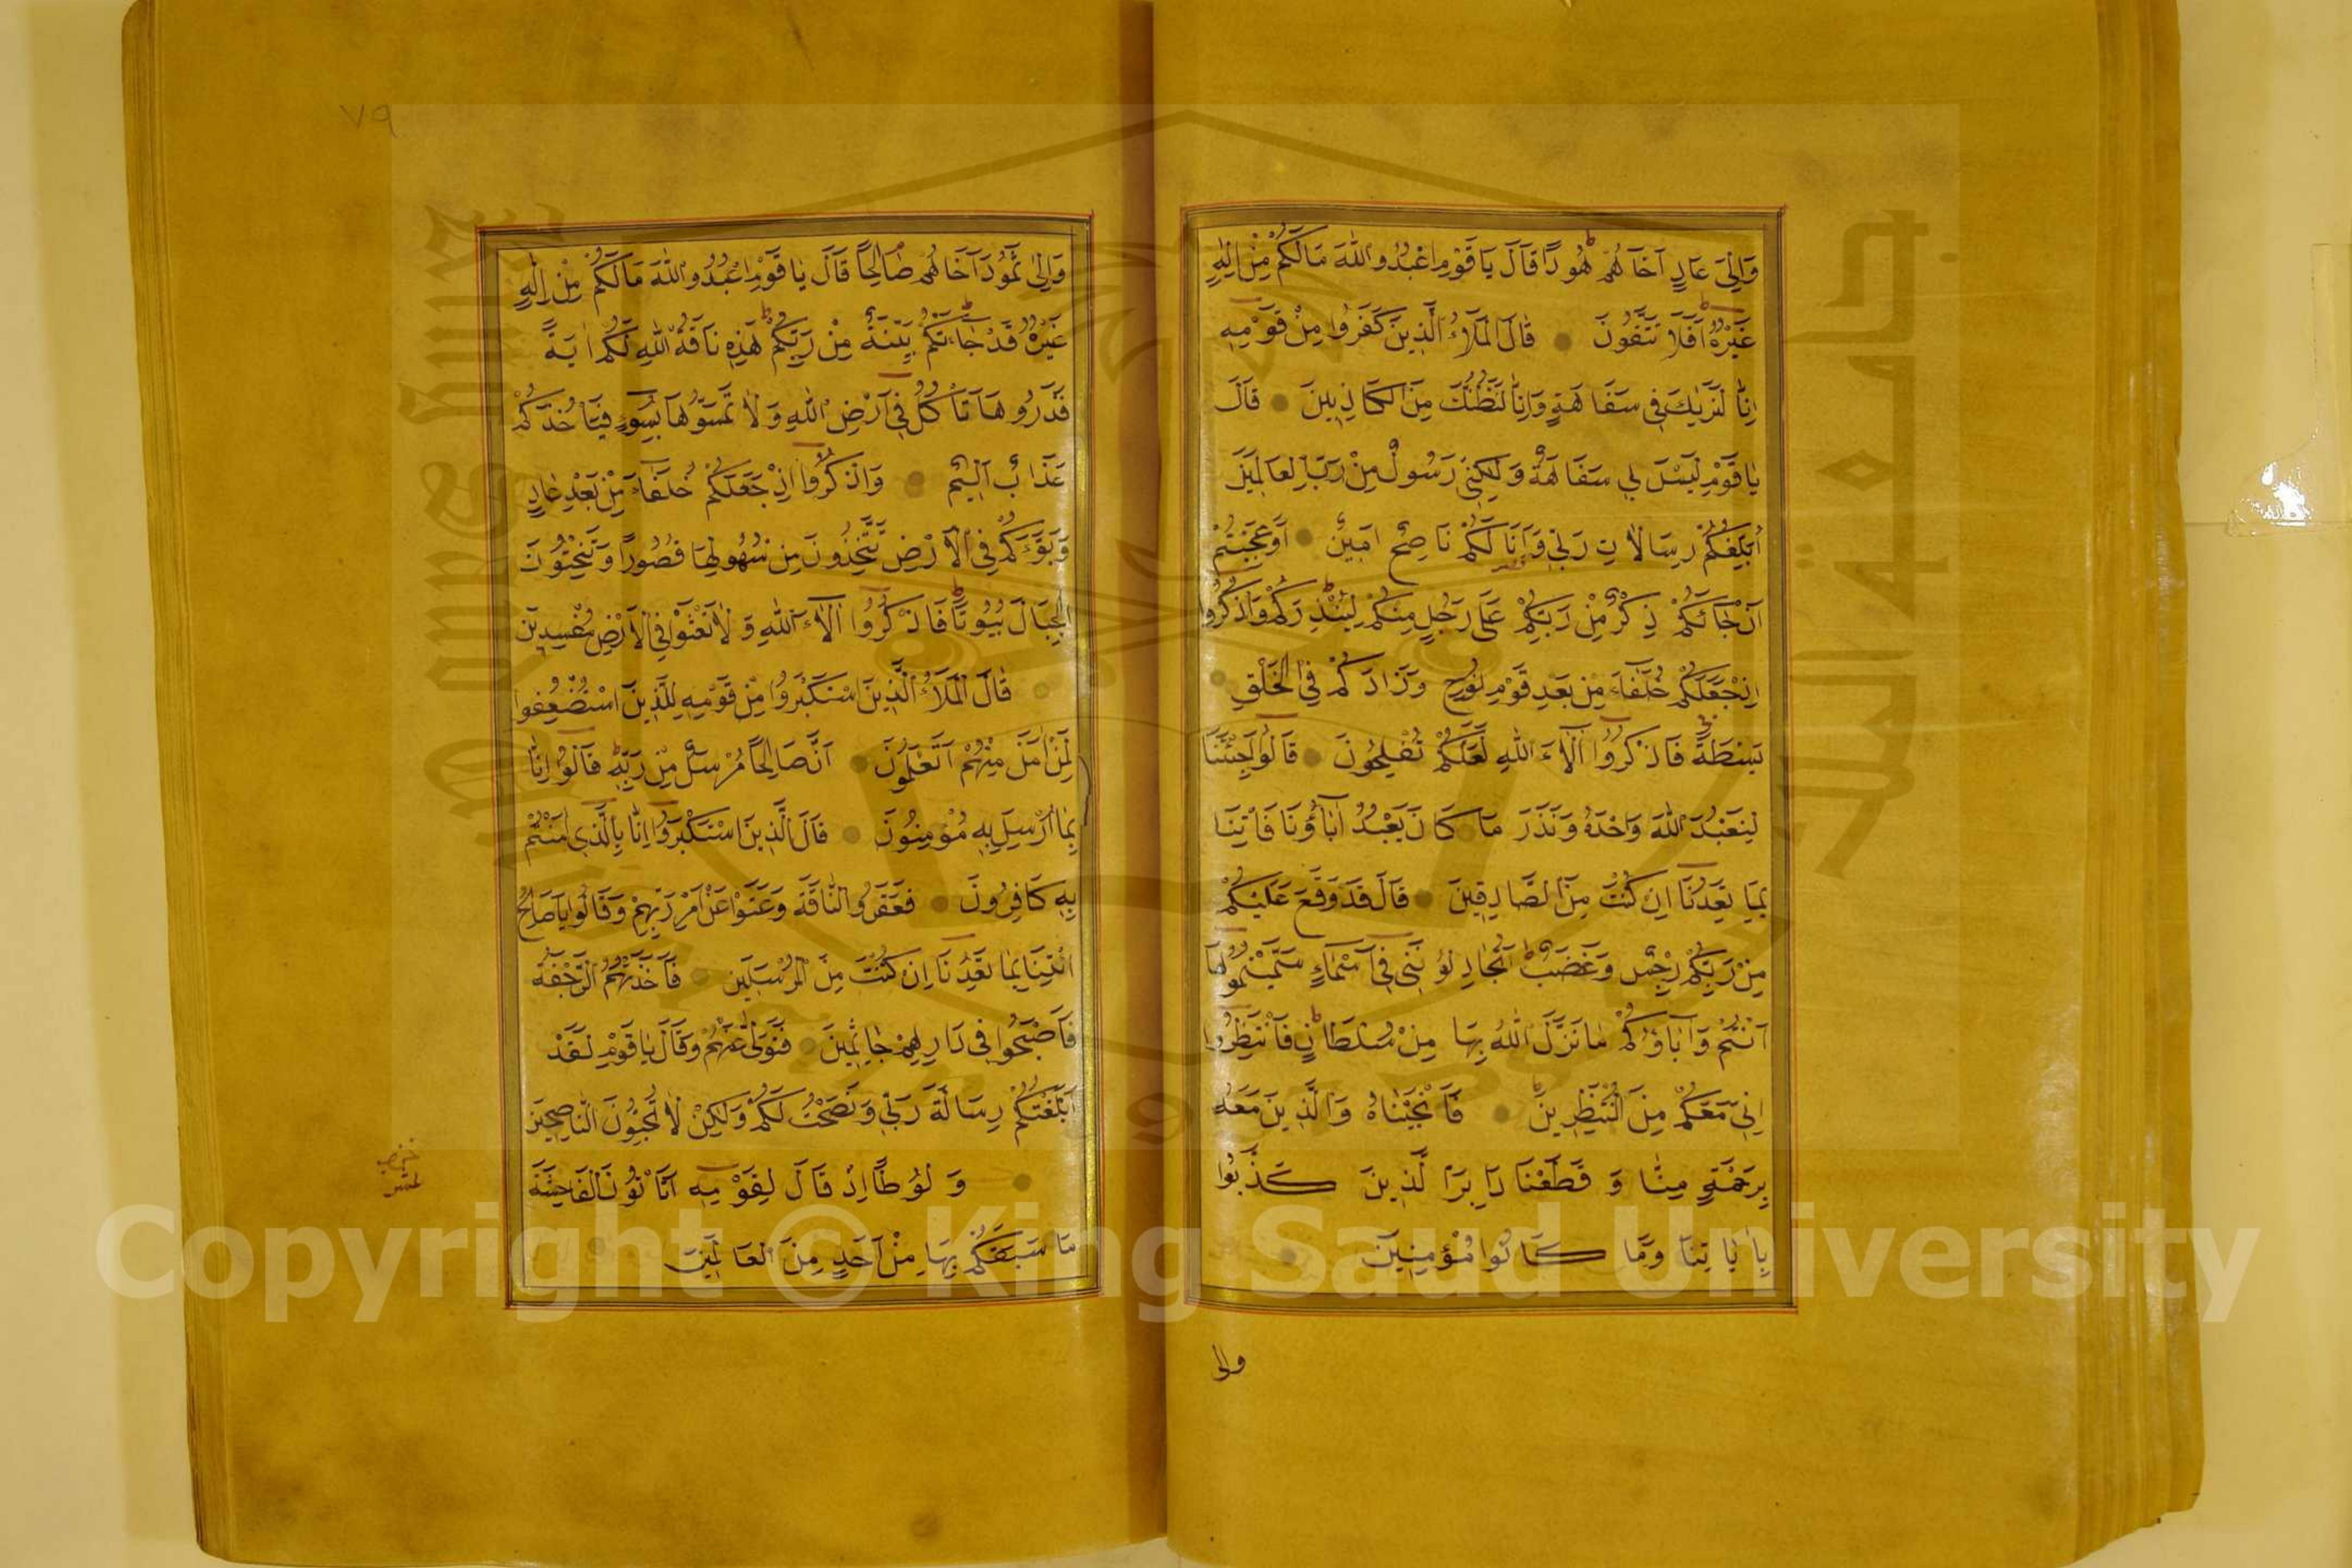 وَاِلٰى عَادٍ اَخَاهُمْ هُودًا قَالَ يَا قَوْمِ اعْبُدُوا اللّٰهَ مَا لَكُمْ مِنْ اِلٰهٍ
غَيْرُهُ اَفَلَا تَتَّقُونَ قَالَ الْمَلَأُ الَّذِينَ كَفَرُوا مِنْ قَوْمِهِ
اِنَّا لَنَرٰيكَ فِي سَفَاهَةٍ وَاِنَّا لَنَظُنُّكَ مِنَ الْكَاذِبِينَ قَالَ
يَا قَوْمِ لَيْسَ بِي سَفَاهَةٌ وَلٰكِنِّي رَسُولٌ مِنْ رَبِّ الْعَالَمِينَ
اُبَلِّغُكُمْ رِسَالَاتِ رَبِّي وَاَنَا لَكُمْ نَاصِحٌ اَمِينٌ اَوَعَجِبْتُمْ
اَنْ جَائَكُمْ ذِكْرٌ مِنْ رَبِّكُمْ عَلٰى رَجُلٍ مِنْكُمْ لِيُنْذِرَكُمْ وَاذْكُرُوا
اِذْ جَعَلَكُمْ خُلَفَاءَ مِنْ بَعْدِ قَوْمِ نُوحٍ وَزَادَكُمْ فِي الْخَلْقِ
بَسْطَةً فَاذْكُرُوا اٰلَاءَ اللّٰهِ لَعَلَّكُمْ تُفْلِحُونَ قَالُوا اَجِئْتَنَا
لِنَعْبُدَ اللّٰهَ وَحْدَهُ وَنَذَرَ مَا كَانَ يَعْبُدُ اٰبَاؤُنَا فَاْتِنَا
بِمَا تَعِدُنَا اِنْ كُنْتَ مِنَ الصَّادِقِينَ قَالَ قَدْ وَقَعَ عَلَيْكُمْ
مِنْ رَبِّكُمْ رِجْسٌ وَغَضَبٌ اَتُجَادِلُونَنِي فِي اَسْمَاءٍ سَمَّيْتُمُوهَا
اَنْتُمْ وَاٰبَاؤُكُمْ مَا نَزَّلَ اللّٰهُ بِهَا مِنْ سُلْطَانٍ فَانْتَظِرُوا
اِنِّي مَعَكُمْ مِنَ الْمُنْتَظِرِينَ فَاَنْجَيْنَاهُ وَالَّذِينَ مَعَهُ
بِرَحْمَةٍ مِنَّا وَقَطَعْنَا دَابِرَ الَّذِينَ كَذَّبُوا
بِاٰيَاتِنَا وَمَا كَانُوا مُؤْمِنِينَ
والى
٧٩
وَاِلٰى ثَمُودَ اَخَاهُمْ صَالِحًا قَالَ يَا قَوْمِ اعْبُدُوا اللّٰهَ مَا لَكُمْ مِنْ اِلٰهٍ
غَيْرُهُ قَدْ جَاءَتْكُمْ بَيِّنَةٌ مِنْ رَبِّكُمْ هٰذِهِ نَاقَةُ اللّٰهِ لَكُمْ اٰيَةً
فَذَرُوهَا تَاْكُلْ فِي اَرْضِ اللّٰهِ وَلَا تَمَسُّوهَا بِسُوءٍ فَيَاْخُذَكُمْ
عَذَابٌ اَلِيمٌ وَاذْكُرُوا اِذْ جَعَلَكُمْ خُلَفَاءَ مِنْ بَعْدِ عَادٍ
وَبَوَّءَكُمْ فِي الْاَرْضِ تَتَّخِذُونَ مِنْ سُهُولِهَا قُصُورًا وَتَنْحِتُونَ
الْجِبَالَ بُيُوتًا فَاذْكُرُوا اٰلَاءَ اللّٰهِ وَلَا تَعْثَوْا فِي الْاَرْضِ مُفْسِدِينَ
قَالَ الْمَلَأُ الَّذِينَ اسْتَكْبَرُوا مِنْ قَوْمِهِ لِلَّذِينَ اسْتُضْعِفُوا
لِمَنْ اٰمَنَ مِنْهُمْ اَتَعْلَمُونَ اَنَّ صَالِحًا مُرْسَلٌ مِنْ رَبِّهِ قَالُوا اِنَّا
بِمَا اُرْسِلَ بِهِ مُؤْمِنُونَ قَالَ الَّذِينَ اسْتَكْبَرُوا اِنَّا بِالَّذِي اٰمَنْتُمْ
بِهِ كَافِرُونَ فَعَقَرُوا النَّاقَةَ وَعَتَوْا عَنْ اَمْرِ رَبِّهِمْ وَقَالُوا يَا صَالِحُ
ائْتِنَا بِمَا تَعِدُنَا اِنْ كُنْتَ مِنَ الْمُرْسَلِينَ فَاَخَذَتْهُمُ الرَّجْفَةُ
فَاَصْبَحُوا فِي دَارِهِمْ جَاثِمِينَ فَتَوَلّٰى عَنْهُمْ وَقَالَ يَا قَوْمِ لَقَدْ
اَبْلَغْتُكُمْ رِسَالَةَ رَبِّي وَنَصَحْتُ لَكُمْ وَلٰكِنْ لَا تُحِبُّونَ النَّاصِحِينَ
وَلُوطًا اِذْ قَالَ لِقَوْمِهِ اَتَاْتُونَ الْفَاحِشَةَ
مَا سَبَقَكُمْ بِهَا مِنْ اَحَدٍ مِنَ الْعَالَمِينَ
Copyright © King Saud University